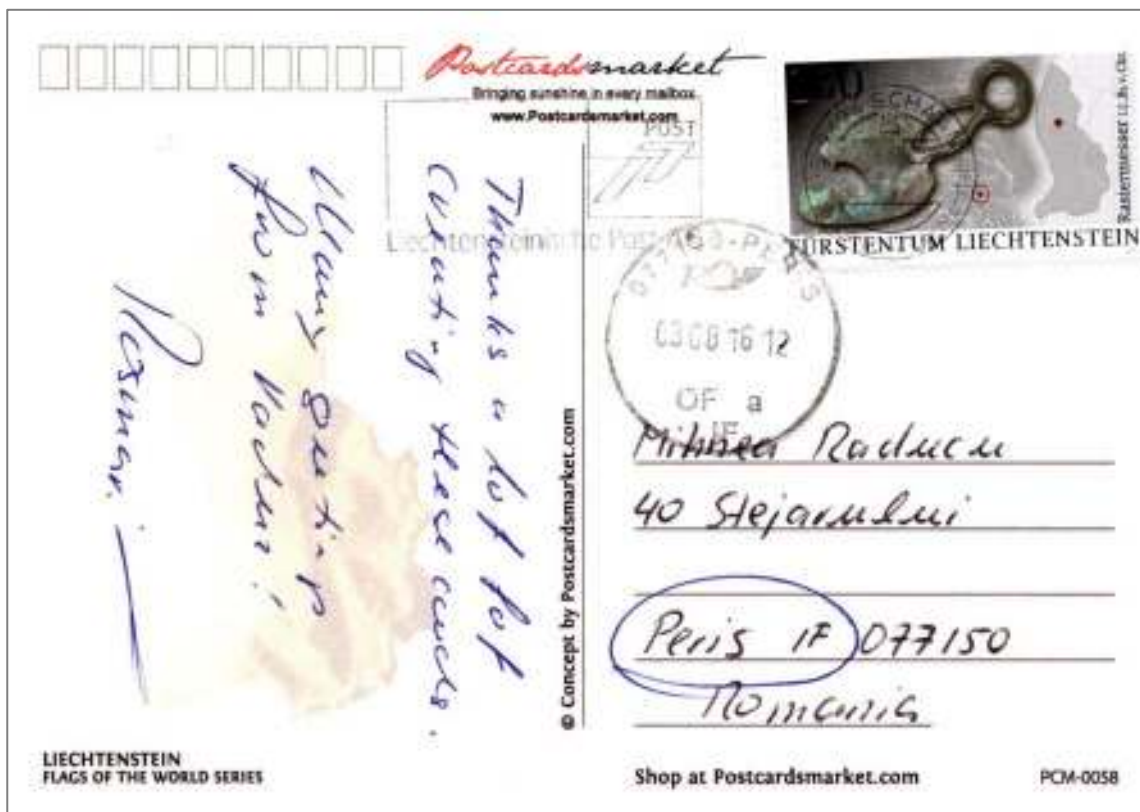 Postcardsmarket
Bringing sunshine in every mailbox
www.Postcardsmarket.com
POST
Liechtensteinische Post AG
FÜRSTENTUM LIECHTENSTEIN
Rastermesser
077150-PERIS
03 08 16 12
OF a
IF
Thanks a lot for
creating these cards.
Many greetings
from Vaduz!
Rosmarie
© Concept by Postcardsmarket.com
Mihnea Raducu
40 Stejarului
Peris IF 077150
Romania
LIECHTENSTEIN
FLAGS OF THE WORLD SERIES
Shop at Postcardsmarket.com
PCM-0058